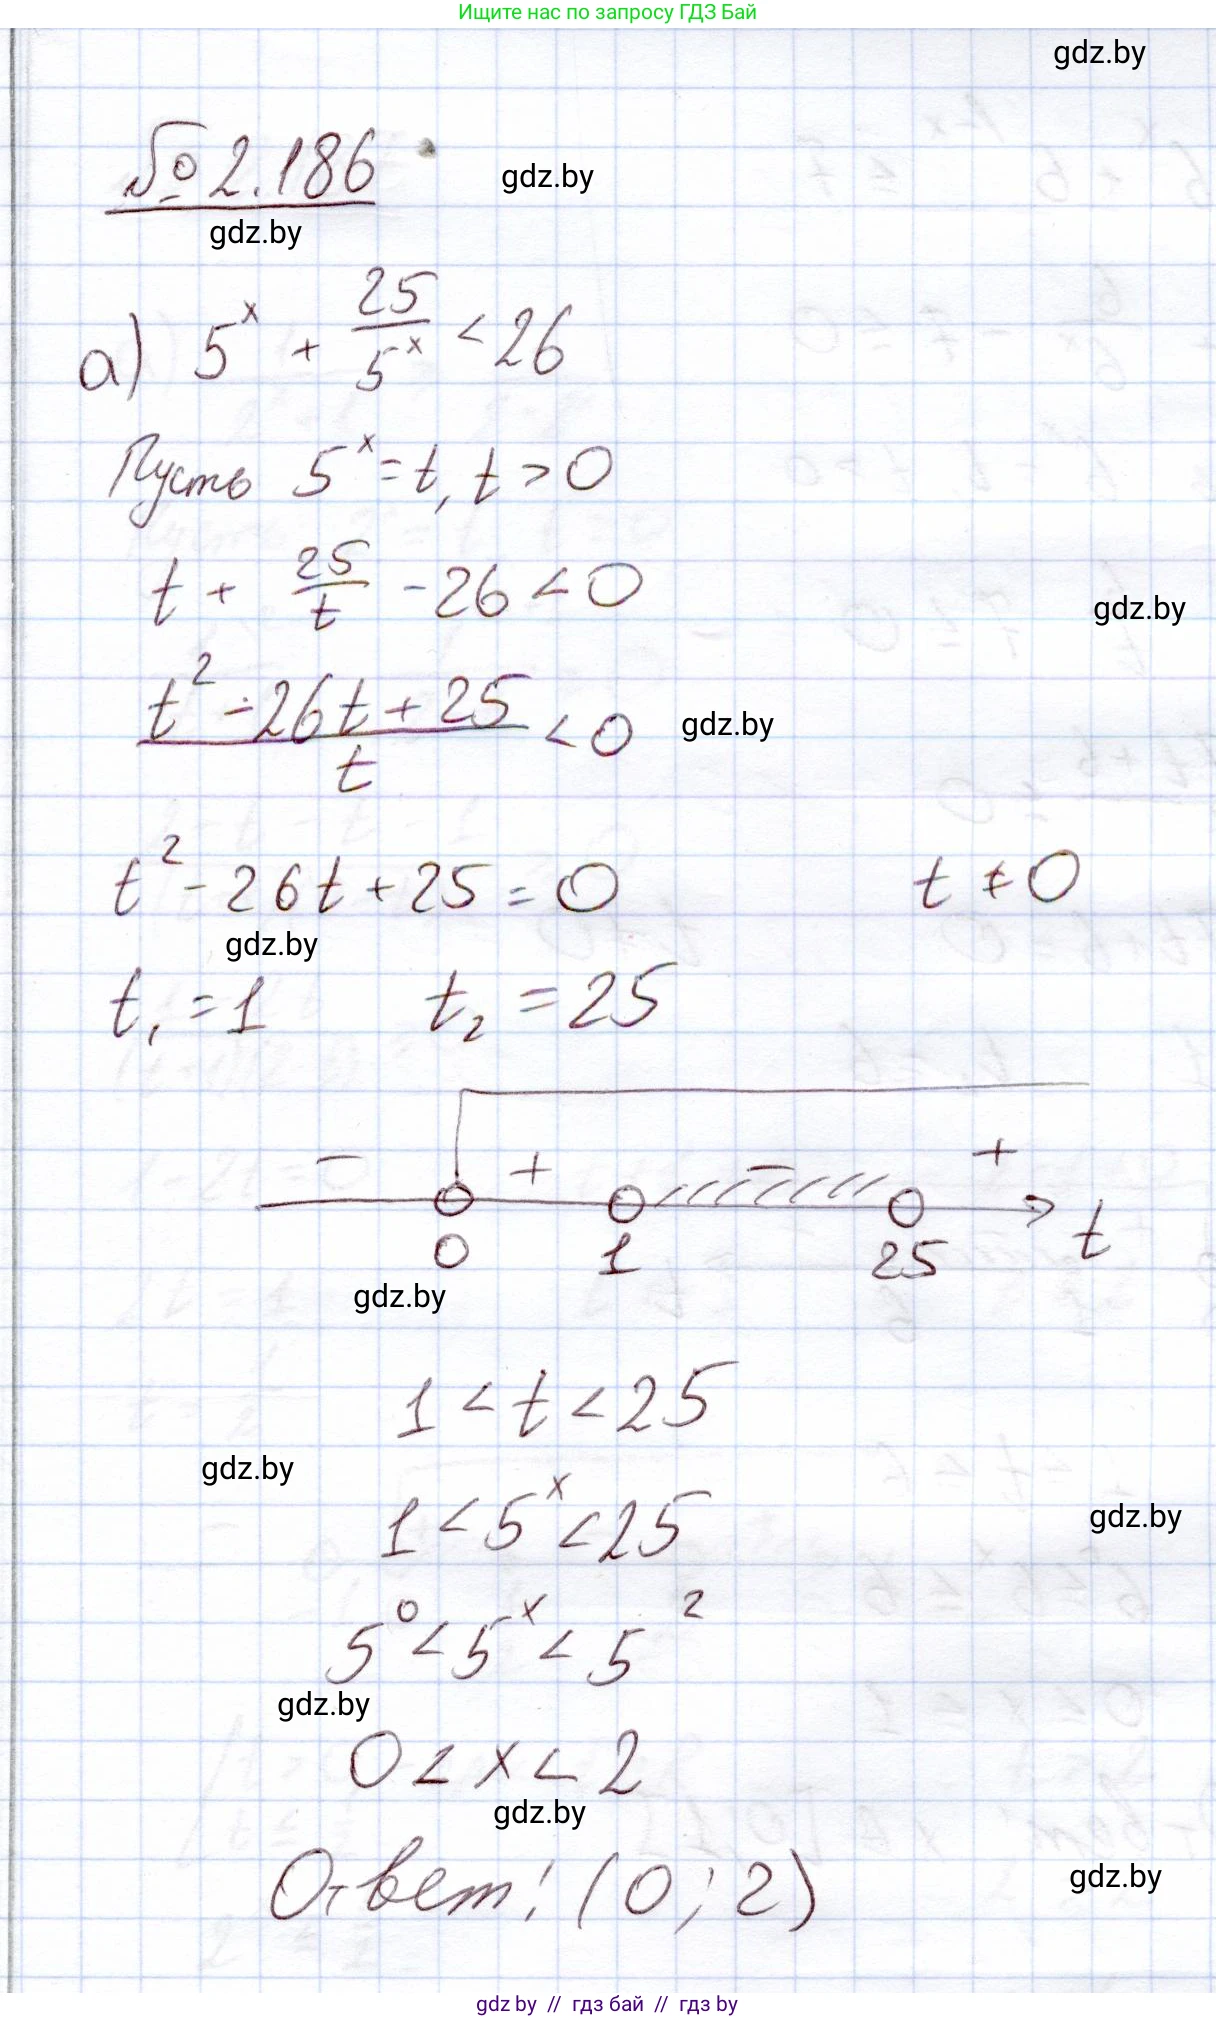 Ищите нас по запросу ГДЗ Бай
gdz.by
№ 2.186
gdz.by
gdz.by
а) 5^x + 25/5^x < 26
Пусть 5^x = t, t > 0
t + 25/t - 26 < 0
gdz.by
(t^2 - 26t + 25)/t < 0
gdz.by
t^2 - 26t + 25 = 0 t ≠ 0
gdz.by
t₁ = 1 t₂ = 25
− + − +
0 1 25 t
gdz.by
1 < t < 25
gdz.by
1 < 5^x < 25
gdz.by
5^0 < 5^x < 5^2
gdz.by
0 < x < 2
gdz.by
Ответ: (0; 2)
gdz.by
gdz by // гдз бай // гдз by